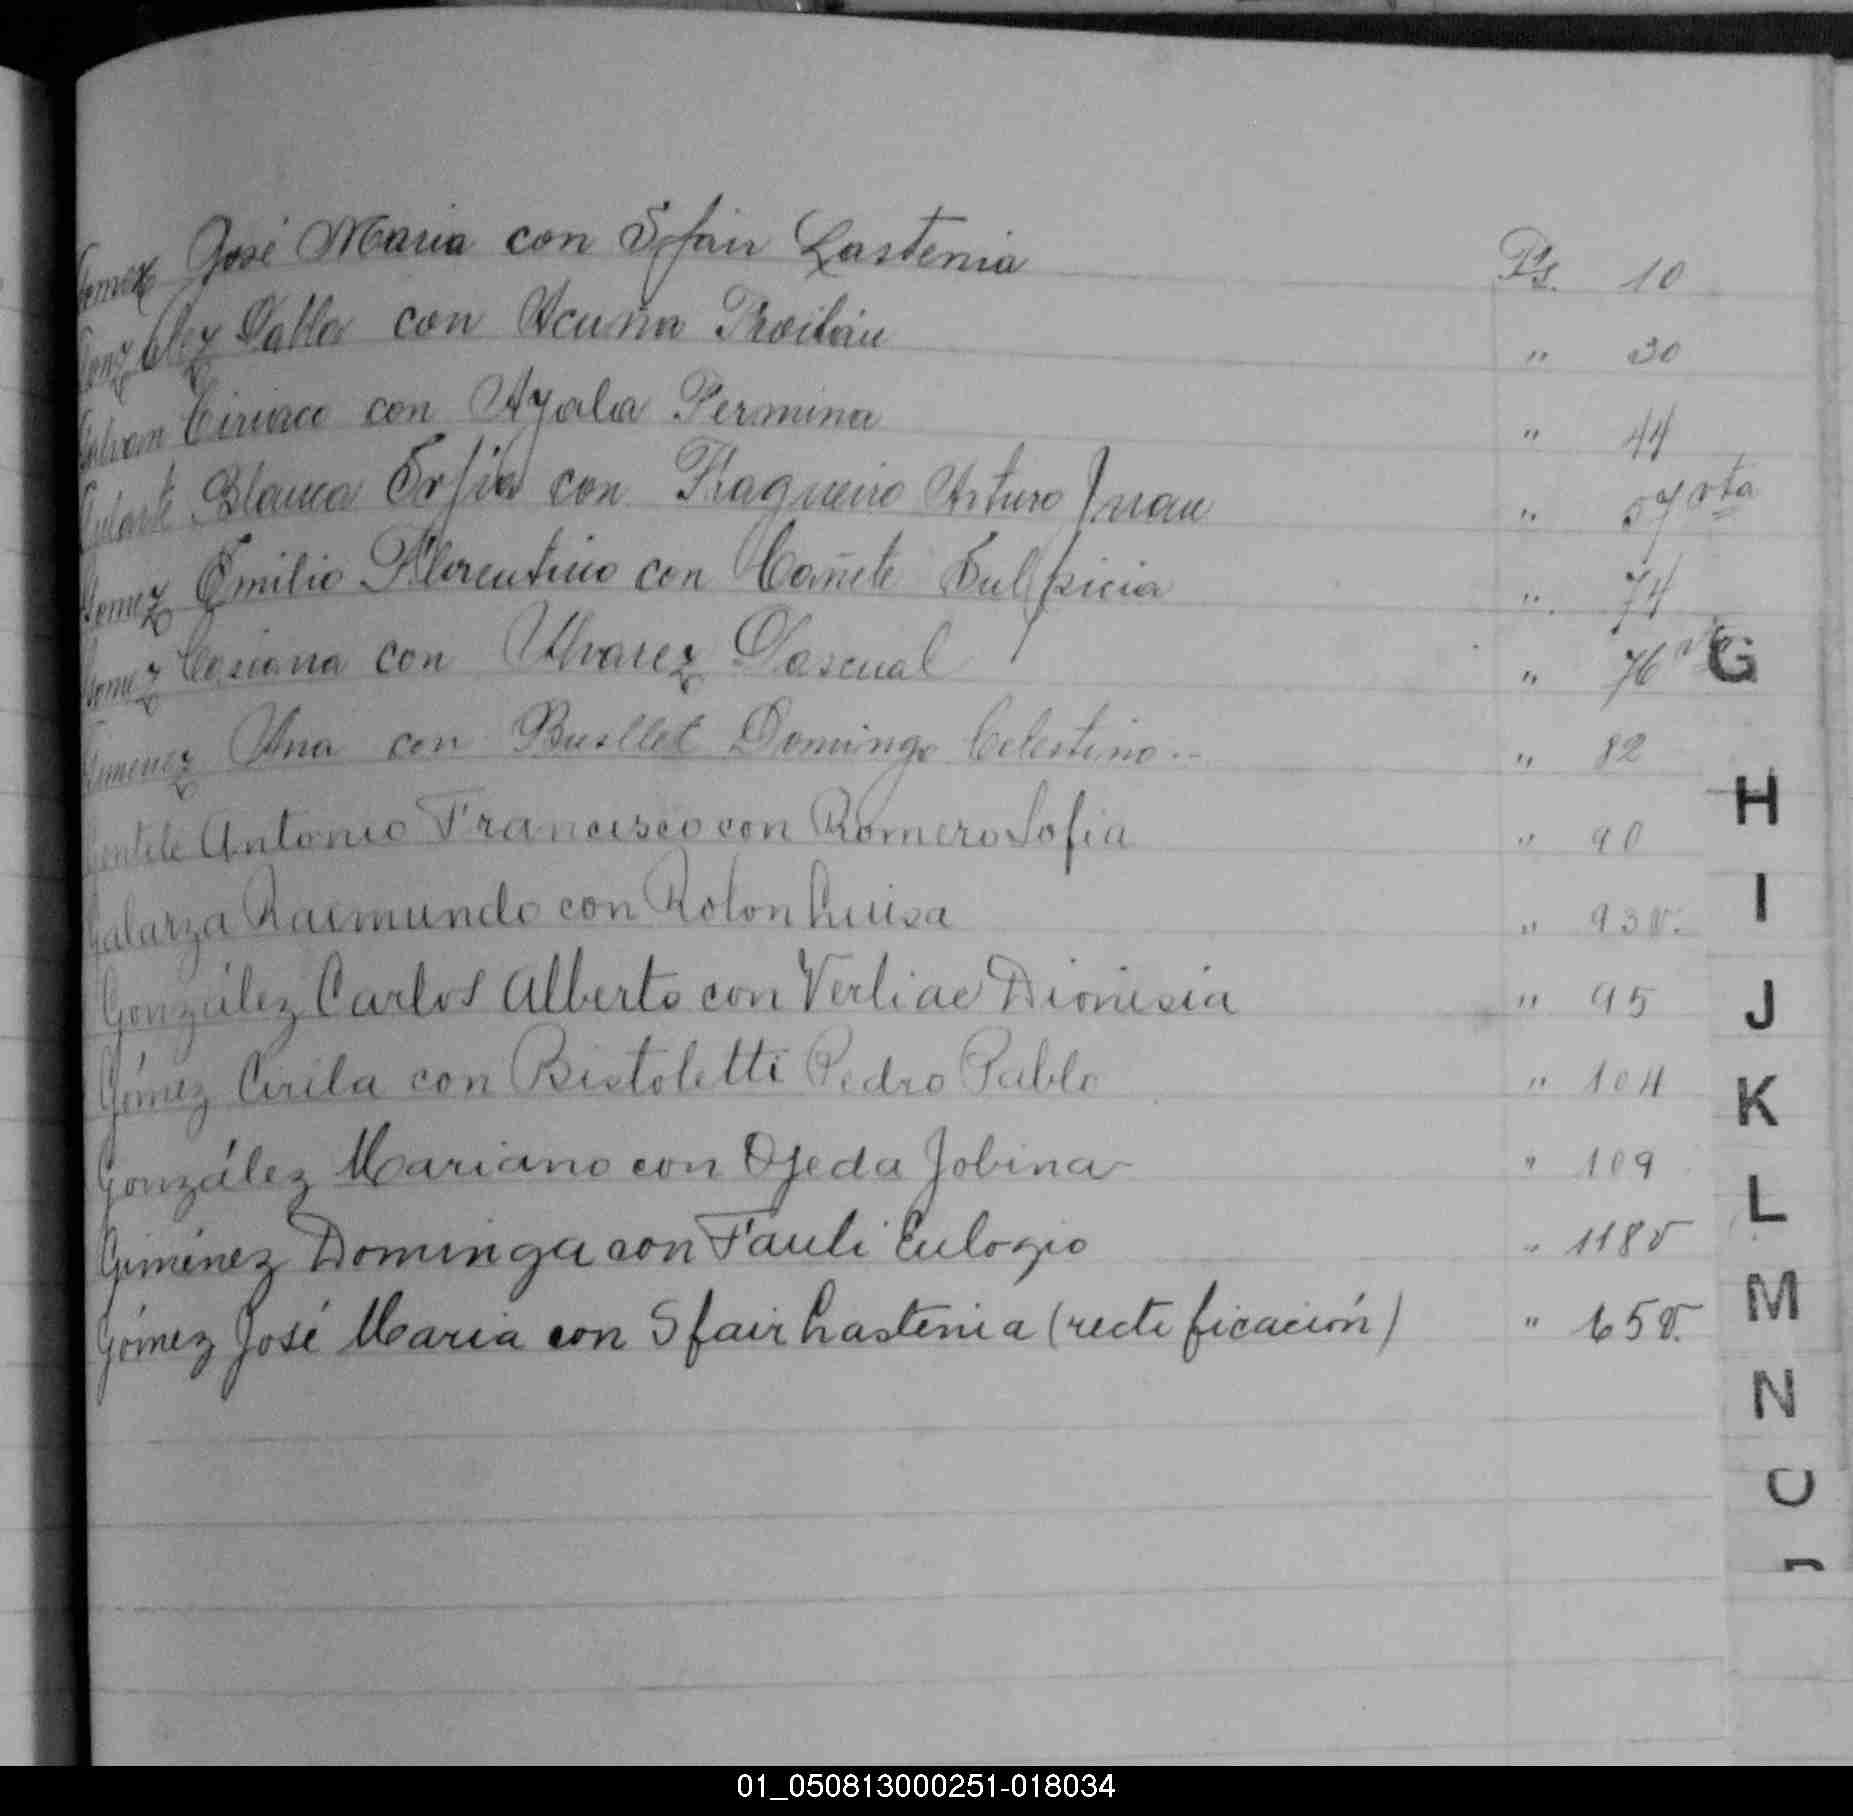 Gomez José Maria con Sfair Lastenia Fs. 10
Gonzalez Pabla con Acuña Froilán " 30
Galvan Ciriaco con Ayala Fermina " 44
Blanca Sofia con Fragueiro Arturo Juan " 57 vta
Gomez Emilio Florentino con Cañete Sulpicia " 74
Gomez Casiana con Alvarez Pascual " 76
Gimenez Ana con Domingo Celestino " 82
Gentile Antonio Francisco con Romero Sofia " 90
Galarza Raimundo con Rolon Luisa " 93 v.
González Carlos Alberto con Dionisia " 95
Gómez Cirila con Bistoletti Pedro Pablo " 104
González Mariano con Ojeda Jobina " 109
Giménez Dominga con Fauli Eulogio " 118 v
Gómez José Maria con Sfair Lastenia (rectificación) " 65 v.
G
H
I
J
K
L
M
N
O
01_050813000251-018034